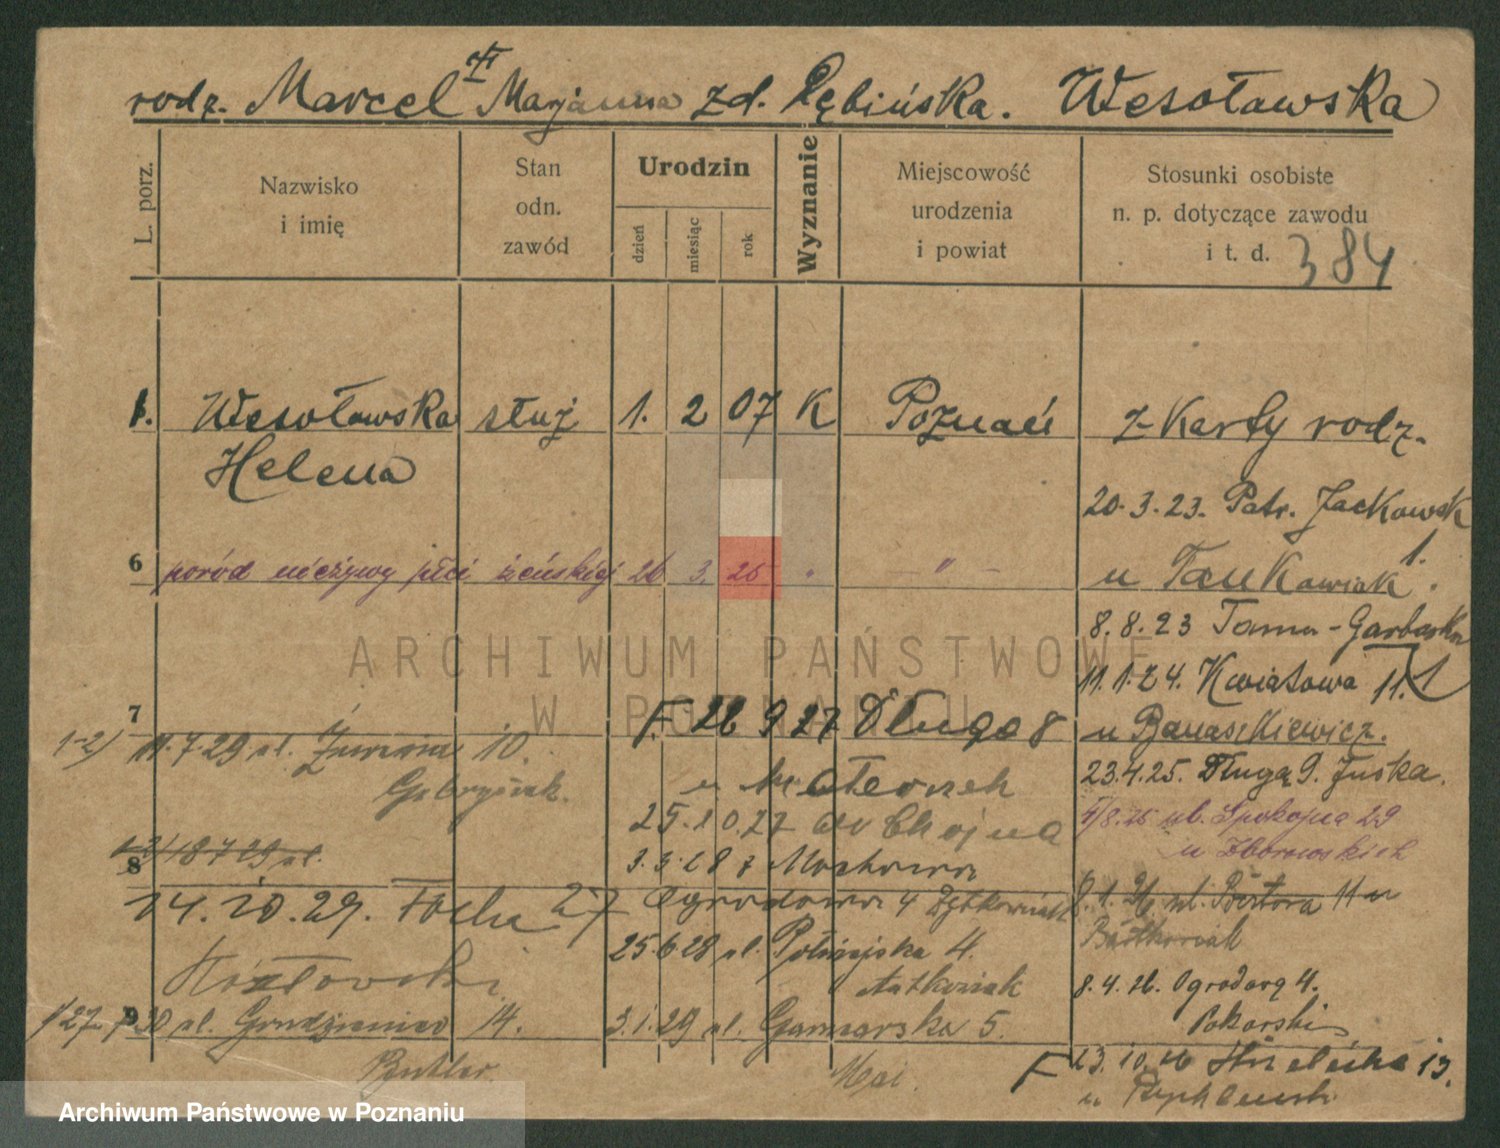 rodz. Marcel Marjanna zd. Dębińska. Wesołowska
L. porz.
Nazwisko
i imię
Stan
odn.
zawód
Urodzin
dzień
miesiąc
rok
Wyznanie
Miejscowość
urodzenia
i powiat
Stosunki osobiste
n. p. dotyczące zawodu
i t. d.
384
1. Wesołowska służ 1. 2 07 K Poznań z Karty rodz.
Helena
20.3.23. Patr. Jackowsk
6 poród nieżywy płci żeńskiej 26 3. 25 " — " —
u Tankowiak 1.
8.8.23 Tama-Garbarska
11.1.24. Kwiatowa 11.
7 F. 26 9 27 Długa 8
u Banaszkiewicz.
1-2) 11.7.29 ul. Żurawia 10.
23.4.25. Długą 9. Juska.
Gabrysiak.
25.10.27 do Chojna
4/8.25 ul. Spokojna 29
u Zborowskich
1-3) 18 7 29 ul.
8
3.3.28 z
14.10.29. Focha 27 Ogrodowa 4
8.1.26 ul. 11 u
25.6.28 ul. Półwiejska 4.
Kozłowski
Antkowiak
8.4.26. Ogrodową 4.
Pokorski
9
1/27 7 30 ul. Grudzieniec 14. 3.1.29 ul. Garncarska 5.
Butler.
Maj.
F 23.10.26 Strzelecka 13.
u Rychlewski
ARCHIWUM PAŃSTWOWE
W POZNANIU
Archiwum Państwowe w Poznaniu